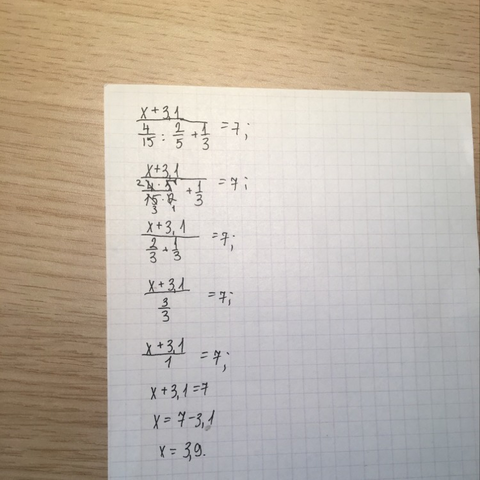 (x+3,1)/(4/15 : 2/5 + 1/3) = 7;
(x+3,1)/((4·5)/(15·2) + 1/3) = 7;
(x+3,1)/(2/3 + 1/3) = 7;
(x+3,1)/(3/3) = 7;
(x+3,1)/1 = 7;
x+3,1=7
x=7-3,1
x=3,9.